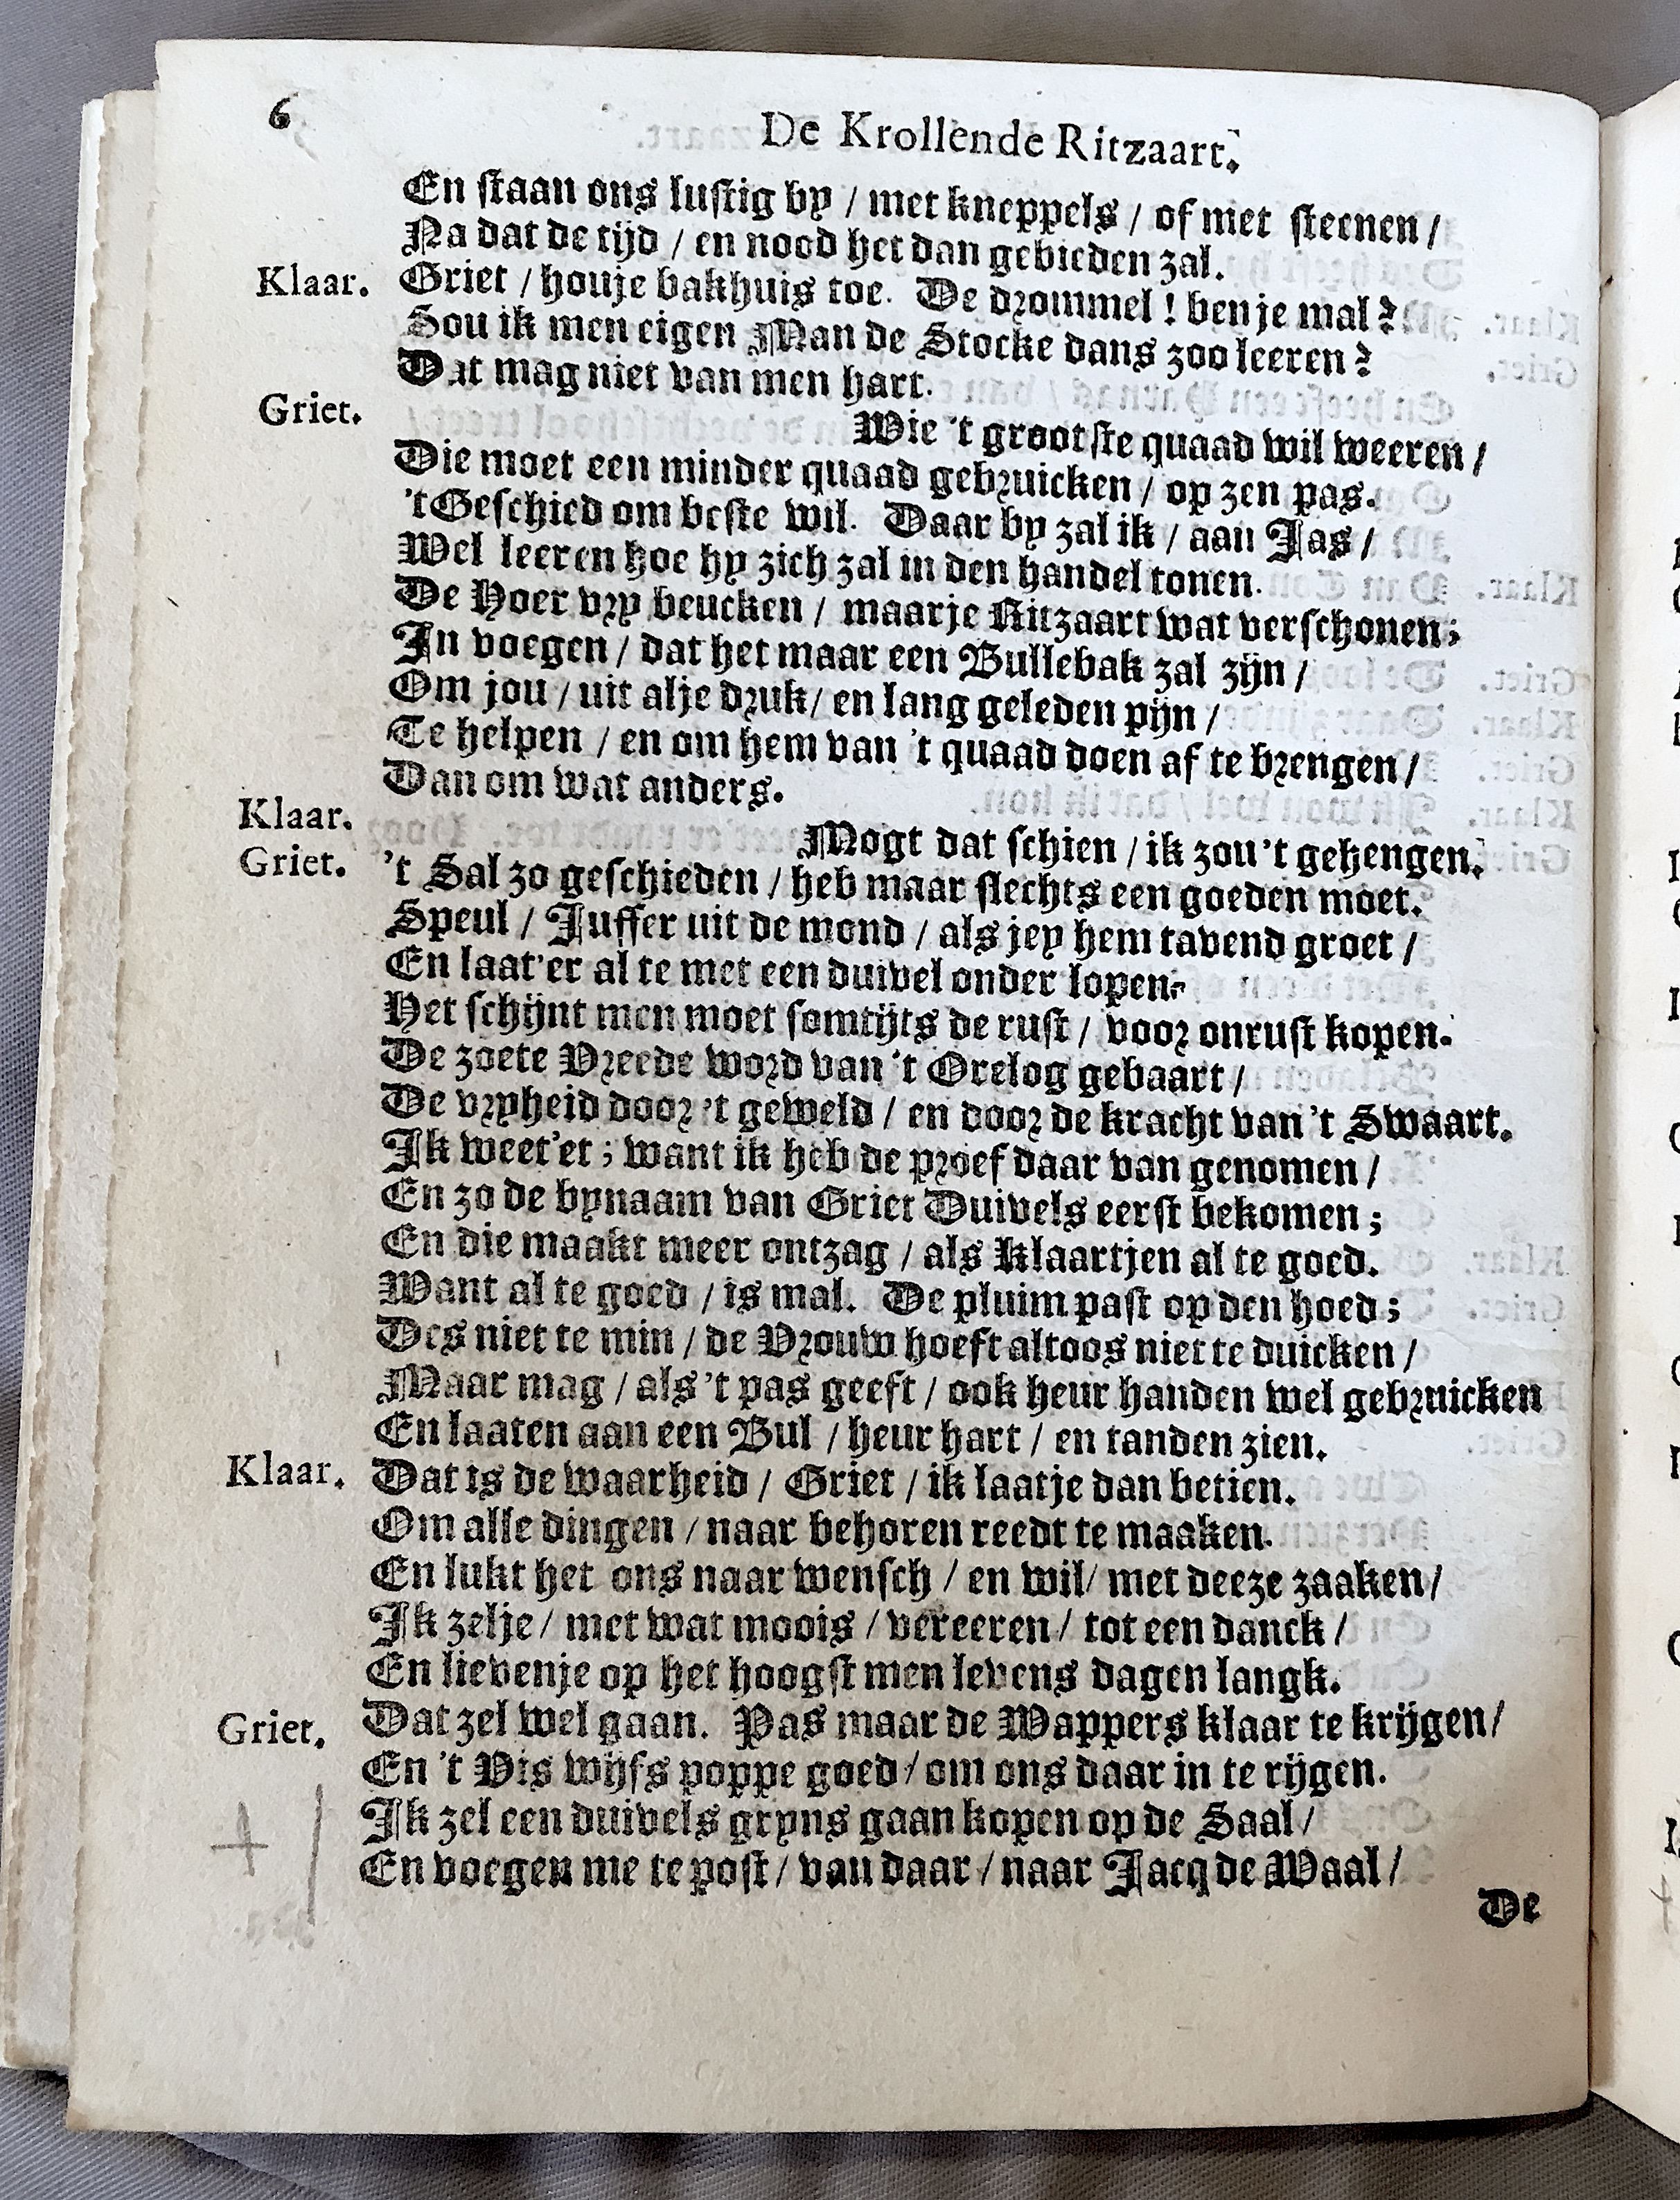 6
De Krollende Ritzaart.
En staan ons lustig by / met kneppels / of met steenen /
Na dat de tijd / en nood het dan gebieden zal.
Klaar. Griet / houje bakhuis toe. De drommel ! ben je mal ?
Sou ik men eigen Man de Stocke dans zoo leeren ?
Dat mag niet van men hart.
Griet. Wie 't grootste quaad wil weeren /
Die moet een minder quaad gebruicken / op zen pas.
't Geschied om beste wil. Daar by zal ik / aan Jas /
Wel leeren hoe hy zich zal in den handel tonen.
De Hoer vry beucken / maar je Ritzaart wat verschonen;
In voegen / dat het maar een Bullebak zal zijn /
Om jou / uit alje druk / en lang geleden pijn /
Te helpen / en om hem van 't quaad doen af te brengen /
Dan om wat anders.
Klaar. Mogt dat schien / ik zou 't gehengen.
Griet. 't Sal zo geschieden / heb maar slechts een goeden moet.
Speul / Juffer uit de mond / als jey hem tavend groet /
En laat'er al te met een duivel onder lopen.
Het schijnt men moet somtijts de rust / voor onrust kopen.
De zoete Vreede word van 't Orelog gebaart /
De vryheid door 't geweld / en door de kracht van 't Swaart.
Ik weet'et ; want ik heb de proef daar van genomen /
En zo de bynaam van Griet Duivels eerst bekomen ;
En die maakt meer ontzag / als Klaartjen al te goed.
Want al te goed / is mal. De pluim past op den hoed ;
Des niet te min / de Vrouw hoeft altoos niet te duicken /
Maar mag / als 't pas geeft / ook heur handen wel gebruicken
En laaten aan een Bul / heur hart / en tanden zien.
Klaar. Dat is de waarheid / Griet / ik laatje dan betien.
Om alle dingen / naar behoren reedt te maaken.
En lukt het ons naar wensch / en wil / met deeze zaaken /
Ik zelje / met wat moois / vereeren / tot een danck /
En lievenje op het hoogst men levens dagen langk.
Griet. Dat zel wel gaan. Pas maar de Wappers klaar te krijgen /
En 't Vis wijfs poppe goed / om ons daar in te rijgen.
Ik zel een duivels gryns gaan kopen op de Saal /
En voegen me te post / van daar / naar Jacq de Waal /
De